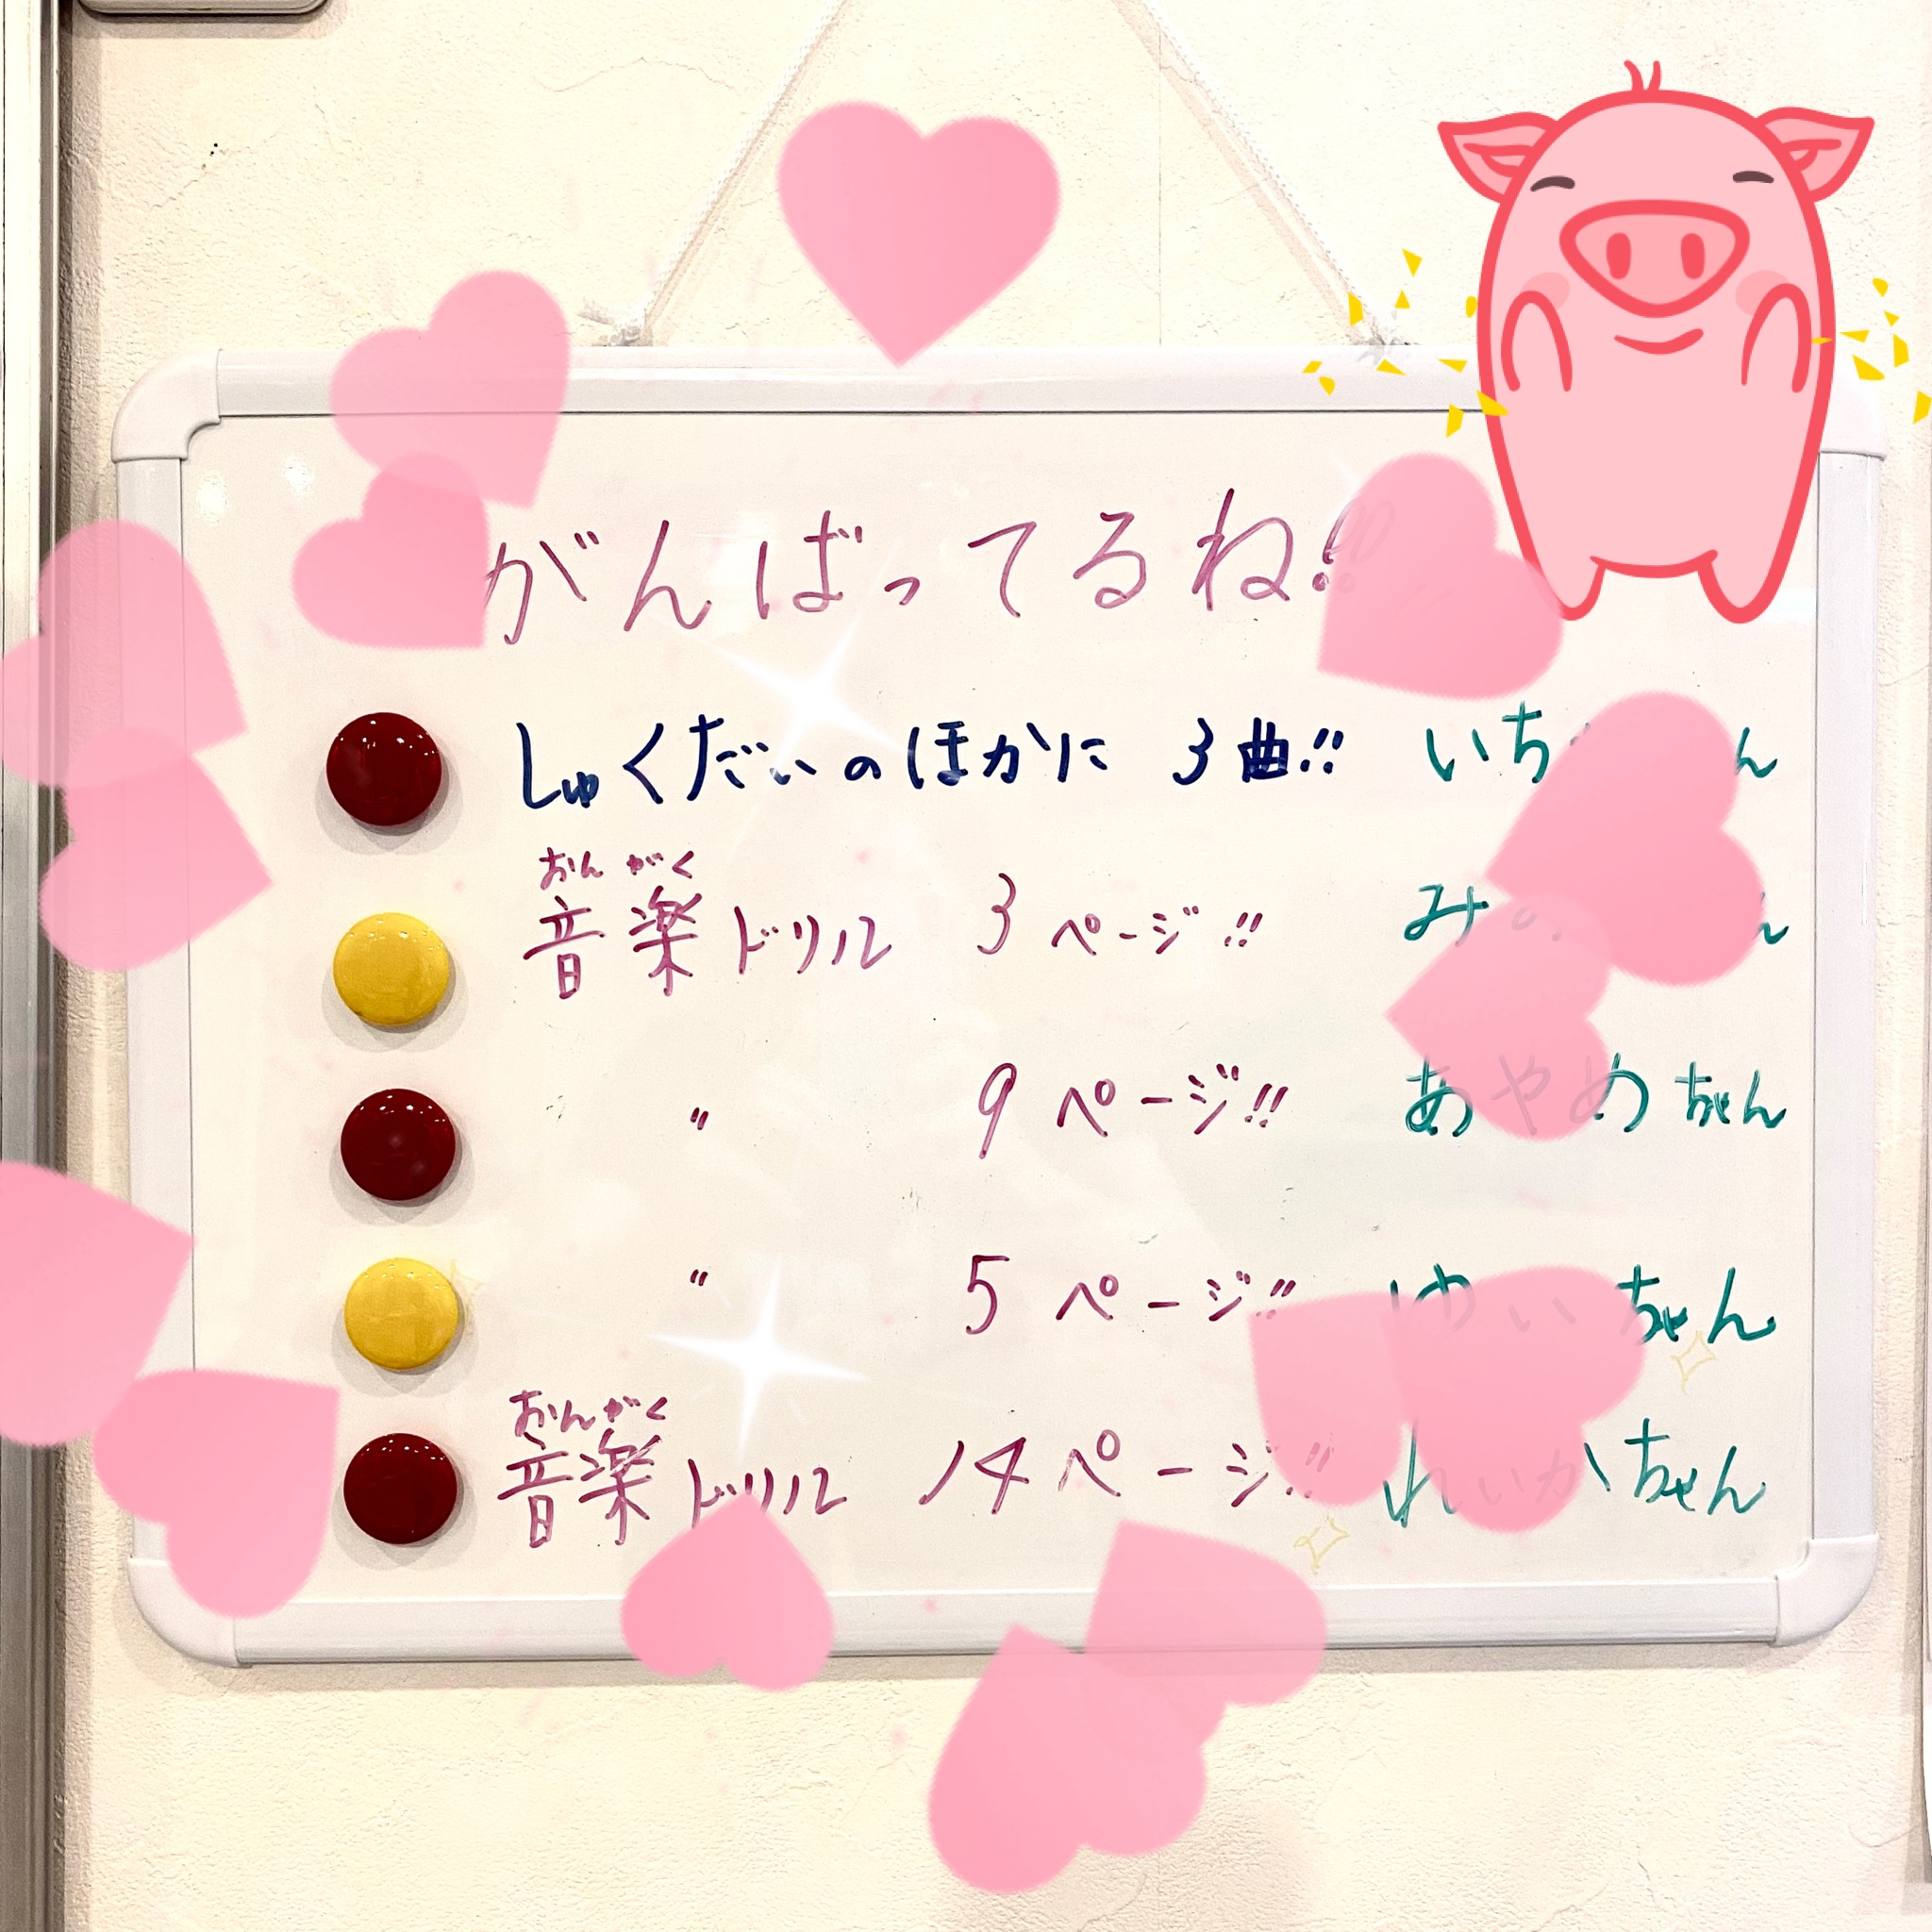 がんばってるね!!
しゅくだいのほかに 3曲!! いち
おんがく
音楽ドリル 3ページ!! み
〃 9ページ!! あやめちゃん
〃 5ページ!! ゆいちゃん
おんがく
音楽ドリル 14ページ!! れいかちゃん